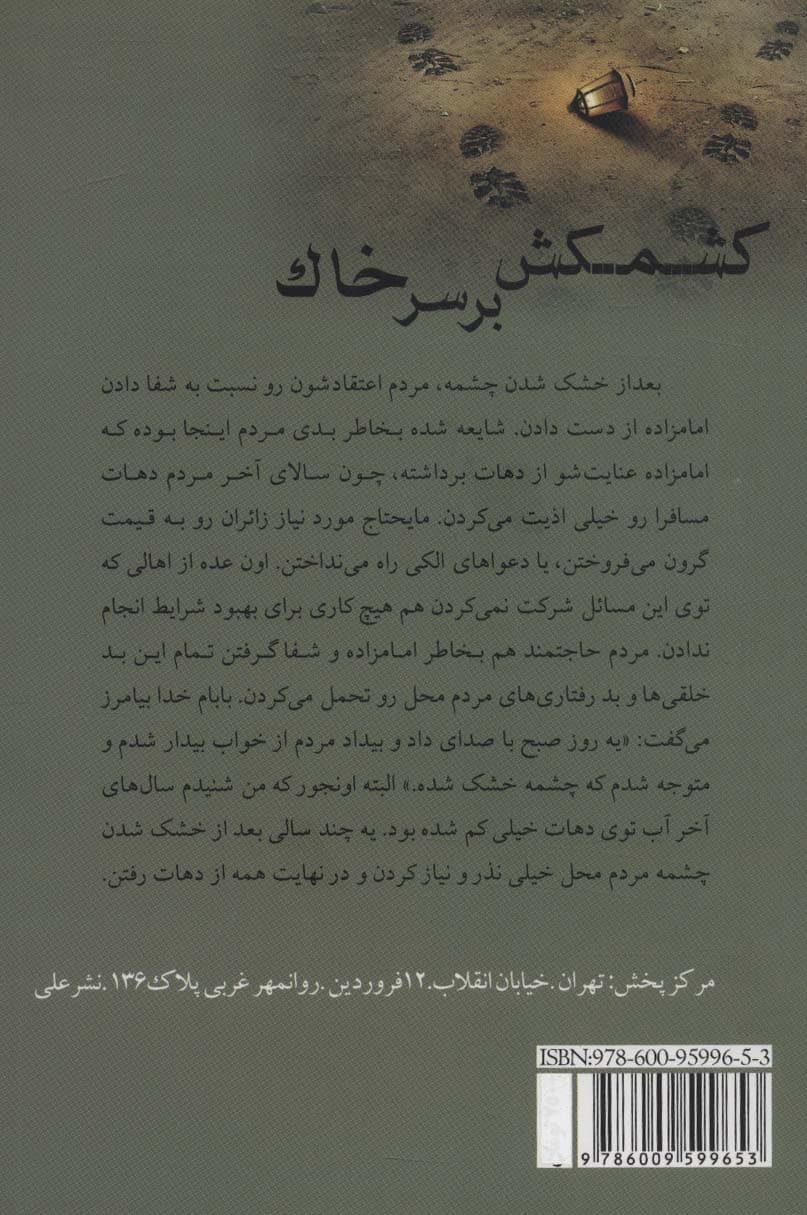 کشمکش بر سر خاک
بعداز خشک شدن چشمه، مردم اعتقادشون رو نسبت به شفا دادن
امامزاده از دست دادن. شایعه شده بخاطر بدی مردم اینجا بوده که
امامزاده عنایت‌شو از دهات برداشته، چون سالای آخر مردم دهات
مسافرا رو خیلی اذیت می‌کردن. مایحتاج مورد نیاز زائران رو به قیمت
گرون می‌فروختن، یا دعواهای الکی راه می‌نداختن. اون عده از اهالی که
توی این مسائل شرکت نمی‌کردن هم هیچ کاری برای بهبود شرایط انجام
ندادن. مردم حاجتمند هم بخاطر امامزاده و شفا گرفتن تمام این بد
خلقی‌ها و بد رفتاری‌های مردم محل رو تحمل می‌کردن. بابام خدا بیامرز
می‌گفت: «یه روز صبح با صدای داد و بیداد مردم از خواب بیدار شدم و
متوجه شدم که چشمه خشک شده.» البته اونجور که من شنیدم سال‌های
آخر آب توی دهات خیلی کم شده بود. یه چند سالی بعد از خشک شدن
چشمه مردم محل خیلی نذر و نیاز کردن و در نهایت همه از دهات رفتن.
مرکز پخش: تهران.خیابان انقلاب.۱۲فروردین.روانمهر غربی پلاک۱۳۶.نشرعلی
ISBN:978-600-95996-5-3
9 786009 599653